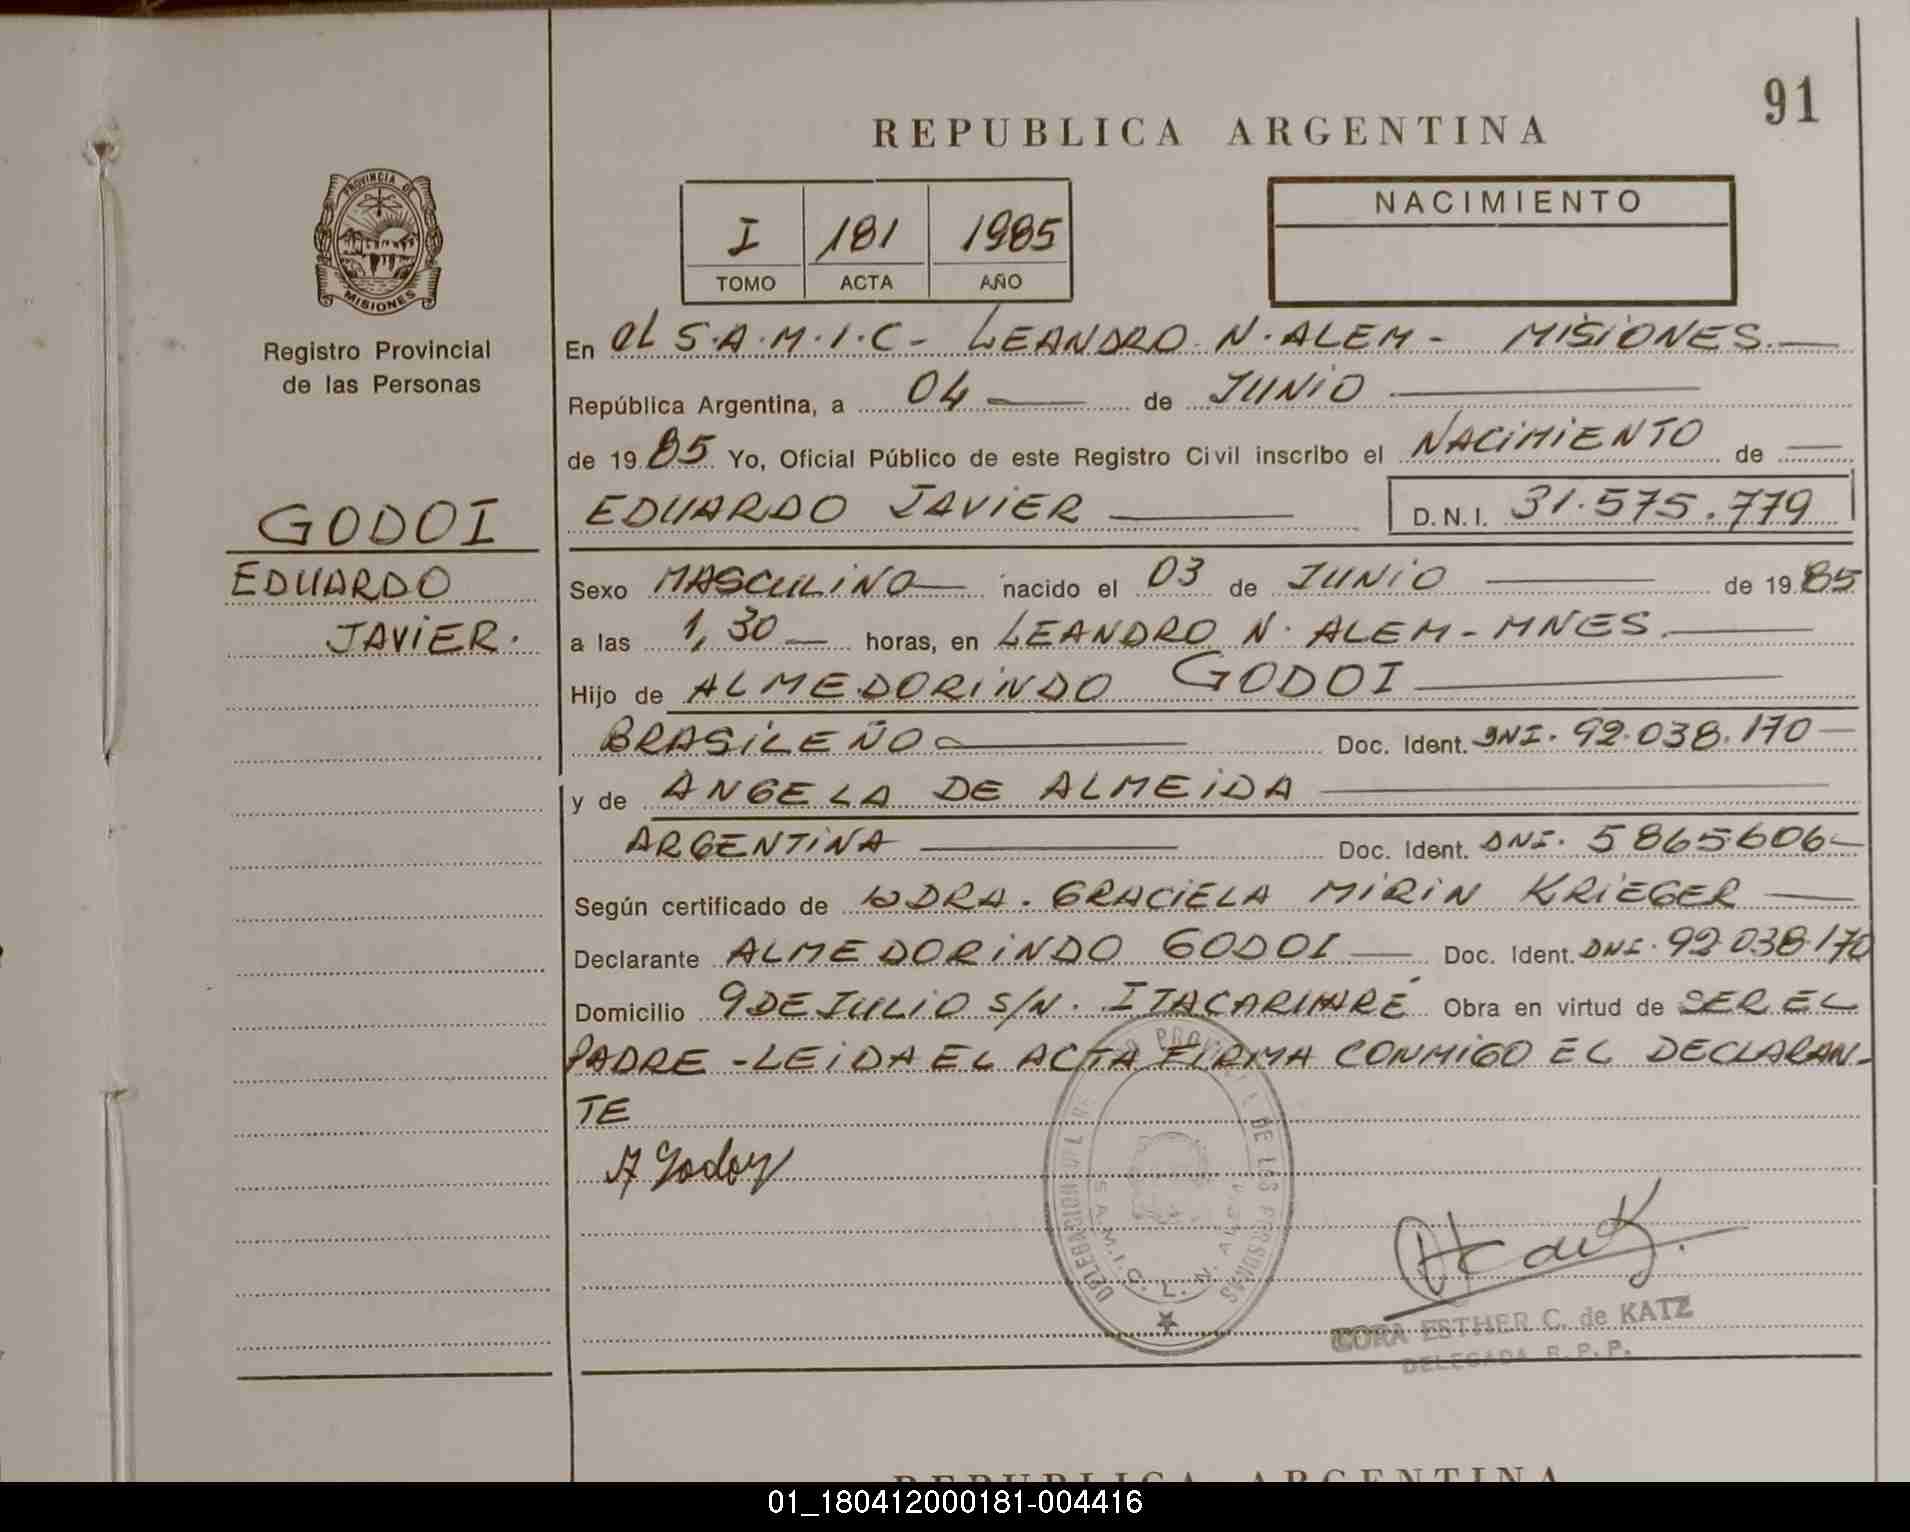 91
REPUBLICA ARGENTINA
PROVINCIA DE
MISIONES
Registro Provincial
de las Personas
I 181 1985
TOMO ACTA AÑO
NACIMIENTO
En el S.A.M.I.C- LEANDRO N. ALEM- MISIONES.
República Argentina, a 04 de JUNIO
de 1985 Yo, Oficial Público de este Registro Civil inscribo el NACIMIENTO de
EDUARDO JAVIER D.N.I. 31.575.779
GODOI
EDUARDO
JAVIER.
Sexo MASCULINO nacido el 03 de JUNIO de 1985
a las 1,30 horas, en LEANDRO N. ALEM-MNES.
Hijo de ALMEDORINDO GODOI
BRASILEÑO Doc. Ident. DNI. 92.038.170
y de ANGELA DE ALMEIDA
ARGENTINA Doc. Ident. DNI. 5865606
Según certificado de DRA. GRACIELA MIRIN KRIEGER
Declarante ALMEDORINDO GODOI Doc. Ident. DNI. 92.038.170
Domicilio 9 DE JULIO S/N. Obra en virtud de SER EL
PADRE - LEIDA EL ACTA FIRMA CONMIGO EL DECLARAN-
TE
A Godoy
DELEGACION DEL PROVINCIAL DE LAS PERSONAS
S.A.M.I.C. L. N. ALEM
CORA ESTHER C. de KATZ
DELEGADA R.P.P.
REPUBLICA ARGENTINA
01_180412000181-004416